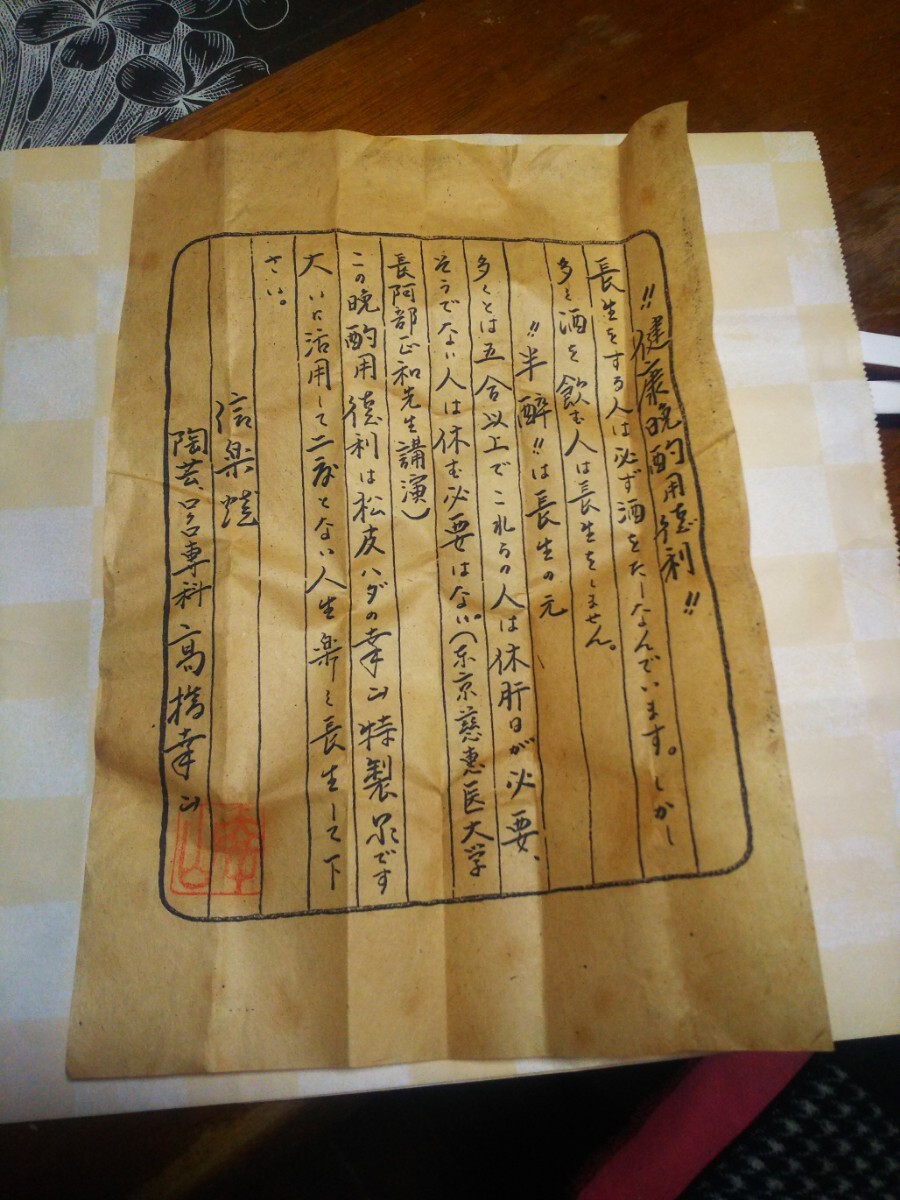 ‼健康晩酌用徳利‼
長生をする人は必ず酒をたしなんでいます。しかし
多く酒を飲む人は長生をしません。
‼半酔‼は長生の元
多くとは五合以上でこれらの人は休肝日が必要、
そうでない人は休む必要はない。(東京慈恵医大学
長阿部正和先生講演)
この晩酌用徳利は松皮ハダの幸山特製品です
大いに活用して二度とない人生楽く長生して下
さい。
信楽焼
陶芸品専科 高橋幸山
幸山